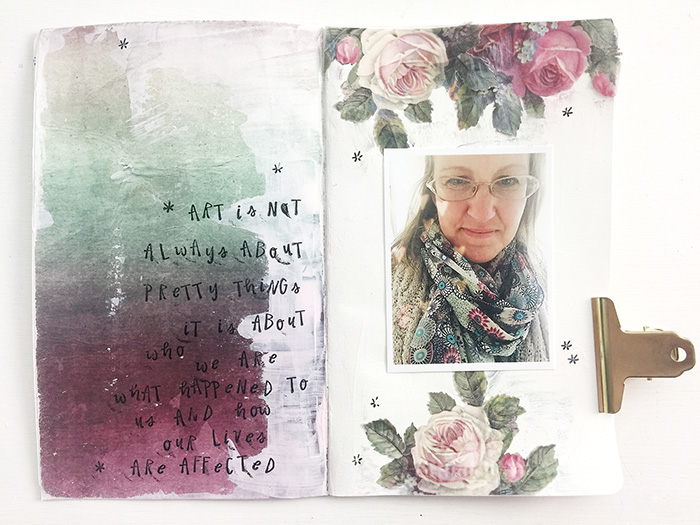 * ART is NOT
ALWAYS ABOUT
PRETTY THINGS
iT is ABOUT
who we ARE
whAT hAPPENED TO
us AND how
ouR LiVES
* ARE AFFECTED